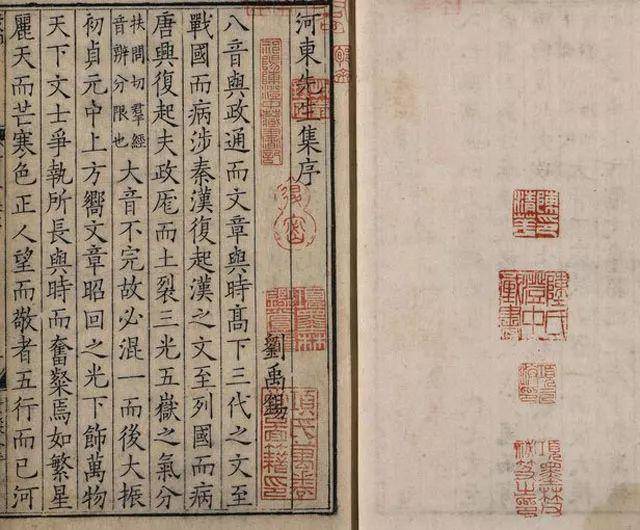 陳氏澄中藏書
祁陽陳澄中藏書記
項氏萬卷堂圖籍印
河東先生集序
劉禹錫
八音與政通而文章與時髙下三代之文至
戰國而病涉秦漢復起漢之文至列國而病
唐興復起夫政厖而土裂三光五嶽之氣分
扶問切羣經
音辨分限也
大音不完故必混一而後大振
初貞元中上方嚮文章昭回之光下飾萬物
天下文士爭執所長與時而奮粲焉如繁星
麗天而芒寒色正人望而敬者五行而已河